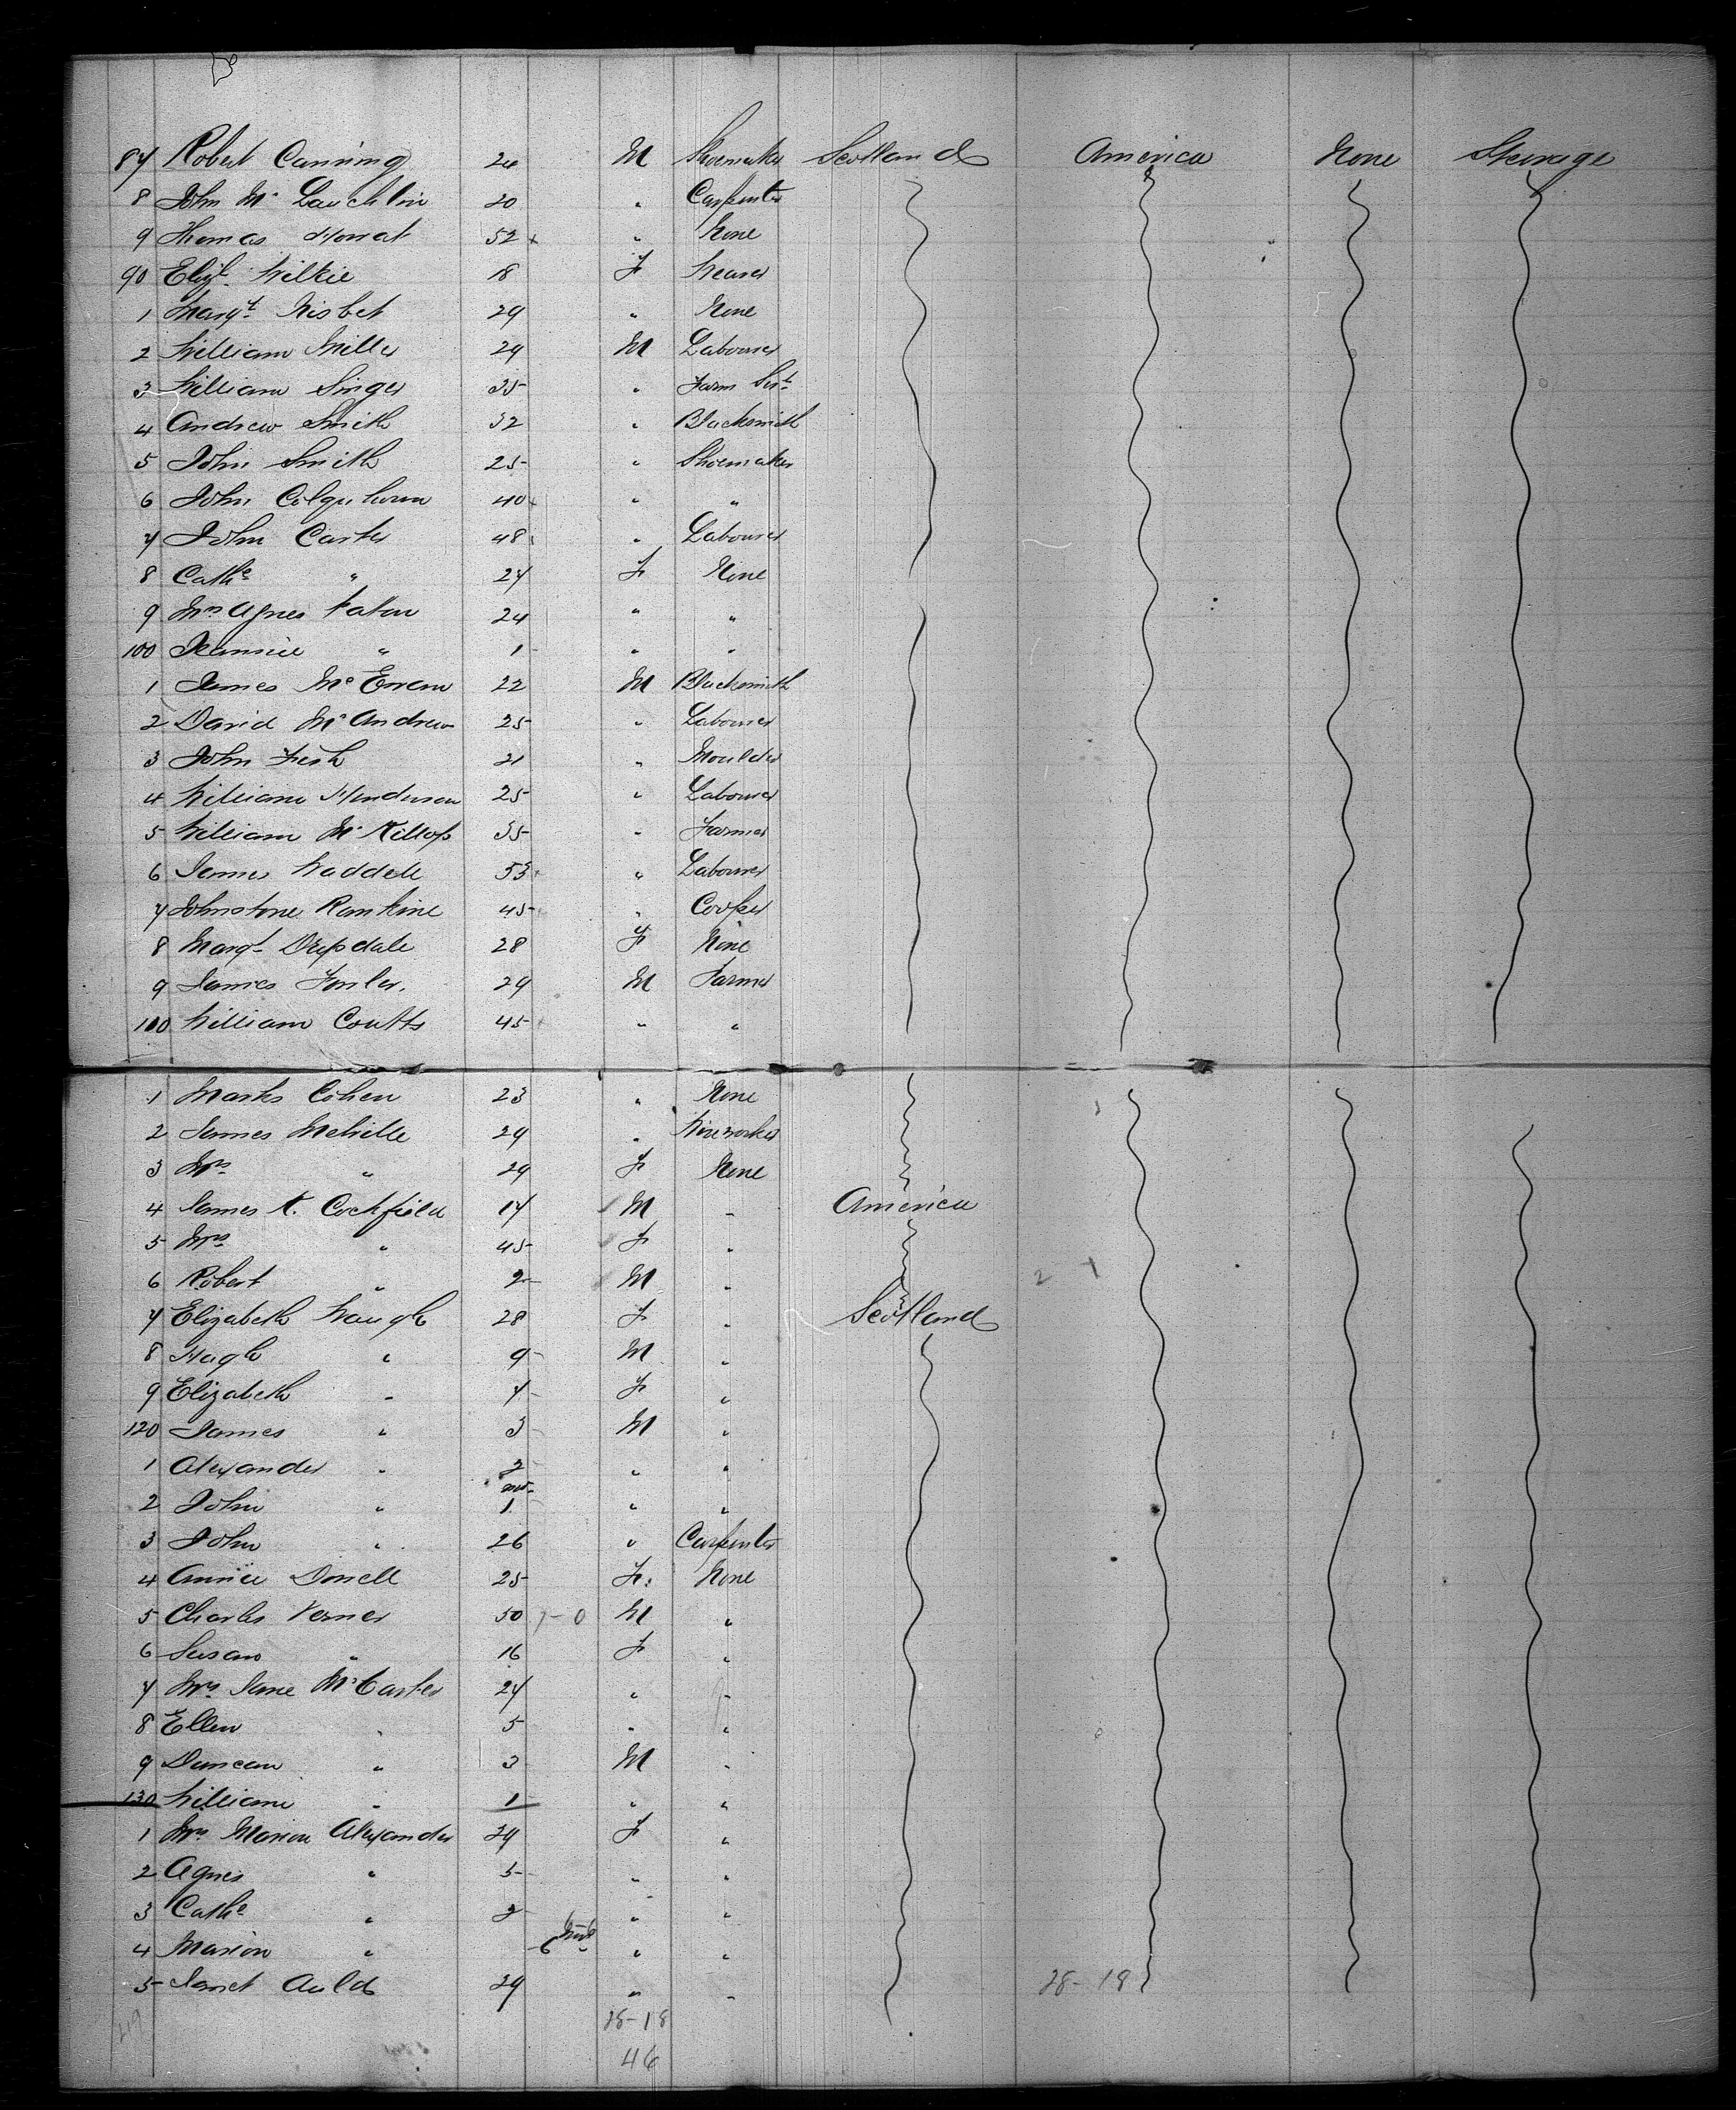 87 Robert Canning 24 M Shoemaker Scotland America None Steerage
8 John Mc Lauchlin 20 " Carpenter
9 Thomas Mouat 52 " None
90 Elizt. Wilkie 18 F Weaver
1 Margt. Nisbet 29 " None
2 William Miller 29 M Labourer
3 William Singer 35 " Farm Sert.
4 Andrew Smith 32 " Blacksmith
5 John Smith 25 " Shoemaker
6 John Colquhoun 40 " "
7 John Carter 48 " Labourer
8 Cathe " 27 F None
9 Mrs Agnes Paton 24 " "
100 Jeannie " 1 " "
1 James Mc Ewen 22 M Blacksmith
2 David Mc Andrew 25 " Labourer
3 John Fish 21 " Moulder
4 William Henderson 25 " Labourer
5 William Mc Killop 35 " Farmer
6 James Waddell 53 " Labourer
7 Johnstone Rankine 45 " Cooper
8 Margt. Drysdale 28 F None
9 James Fowler. 29 M Farmer
110 William Coutts 45 " "
1 Marks Cohen 23 " None
2 James Melville 29 " Wireworker
3 Mrs " 29 F None
4 James Cockfield 17 M " America
5 Mrs " 45 F "
6 Robert " 2 M " 2 1
7 Elizabeth Waugh 28 F " Scotland
8 Hugh " 9 M "
9 Elizabeth " 7 F "
120 James " 3 M "
1 Alexander " 2 " "
2 John " 1 " "
3 John " 26 " Carpenter
4 Annie Donell 25 F. None
5 Charles Verner 50 M "
6 Susan " 16 F "
7 Mrs Jane McCarter 27 " "
8 Ellen " 5 " "
9 Duncan " 3 M "
130 William " 1 " "
1 Mrs Marion Alexander 29 F "
2 Agnes " 5 " "
3 Cathe " 2 " "
4 Marion " 6 " "
5 Janet Auld 29 " " 28-18
28-18
46